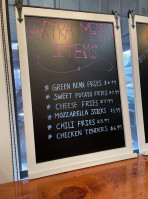 EXTRA MENU
ITEMS
* GREEN BEAN FRIES
* SWEET POTATO FRIES
* CHEESE FRIES
* MOZZARELLA STICKS
* CHILI FRIES
* CHICKEN TENDERS